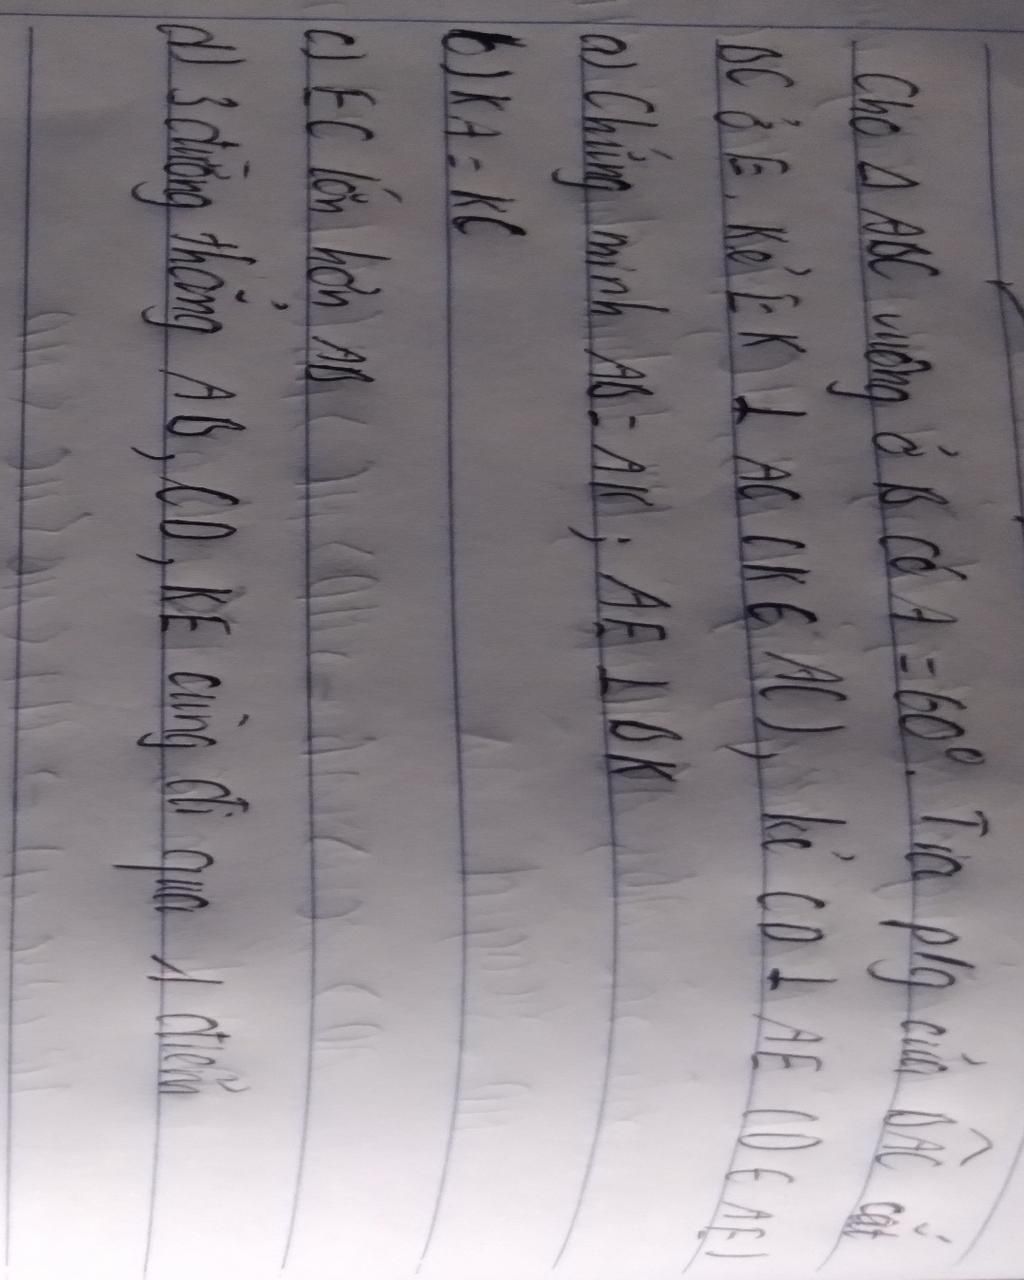 Cho Δ ABC vuông ở B có A = 60°. Tia p/g của BÂC cắt
BC ở E. Kẻ EK ⊥ AC (K ∈ AC), kẻ CD ⊥ AE (D ∈ AE)
a) Chứng minh AB = AK; AE ⊥ BK
b) KA = KC
c) EC lớn hơn AB
d) 3 đường thẳng AB, CD, KE cùng đi qua 1 điểm